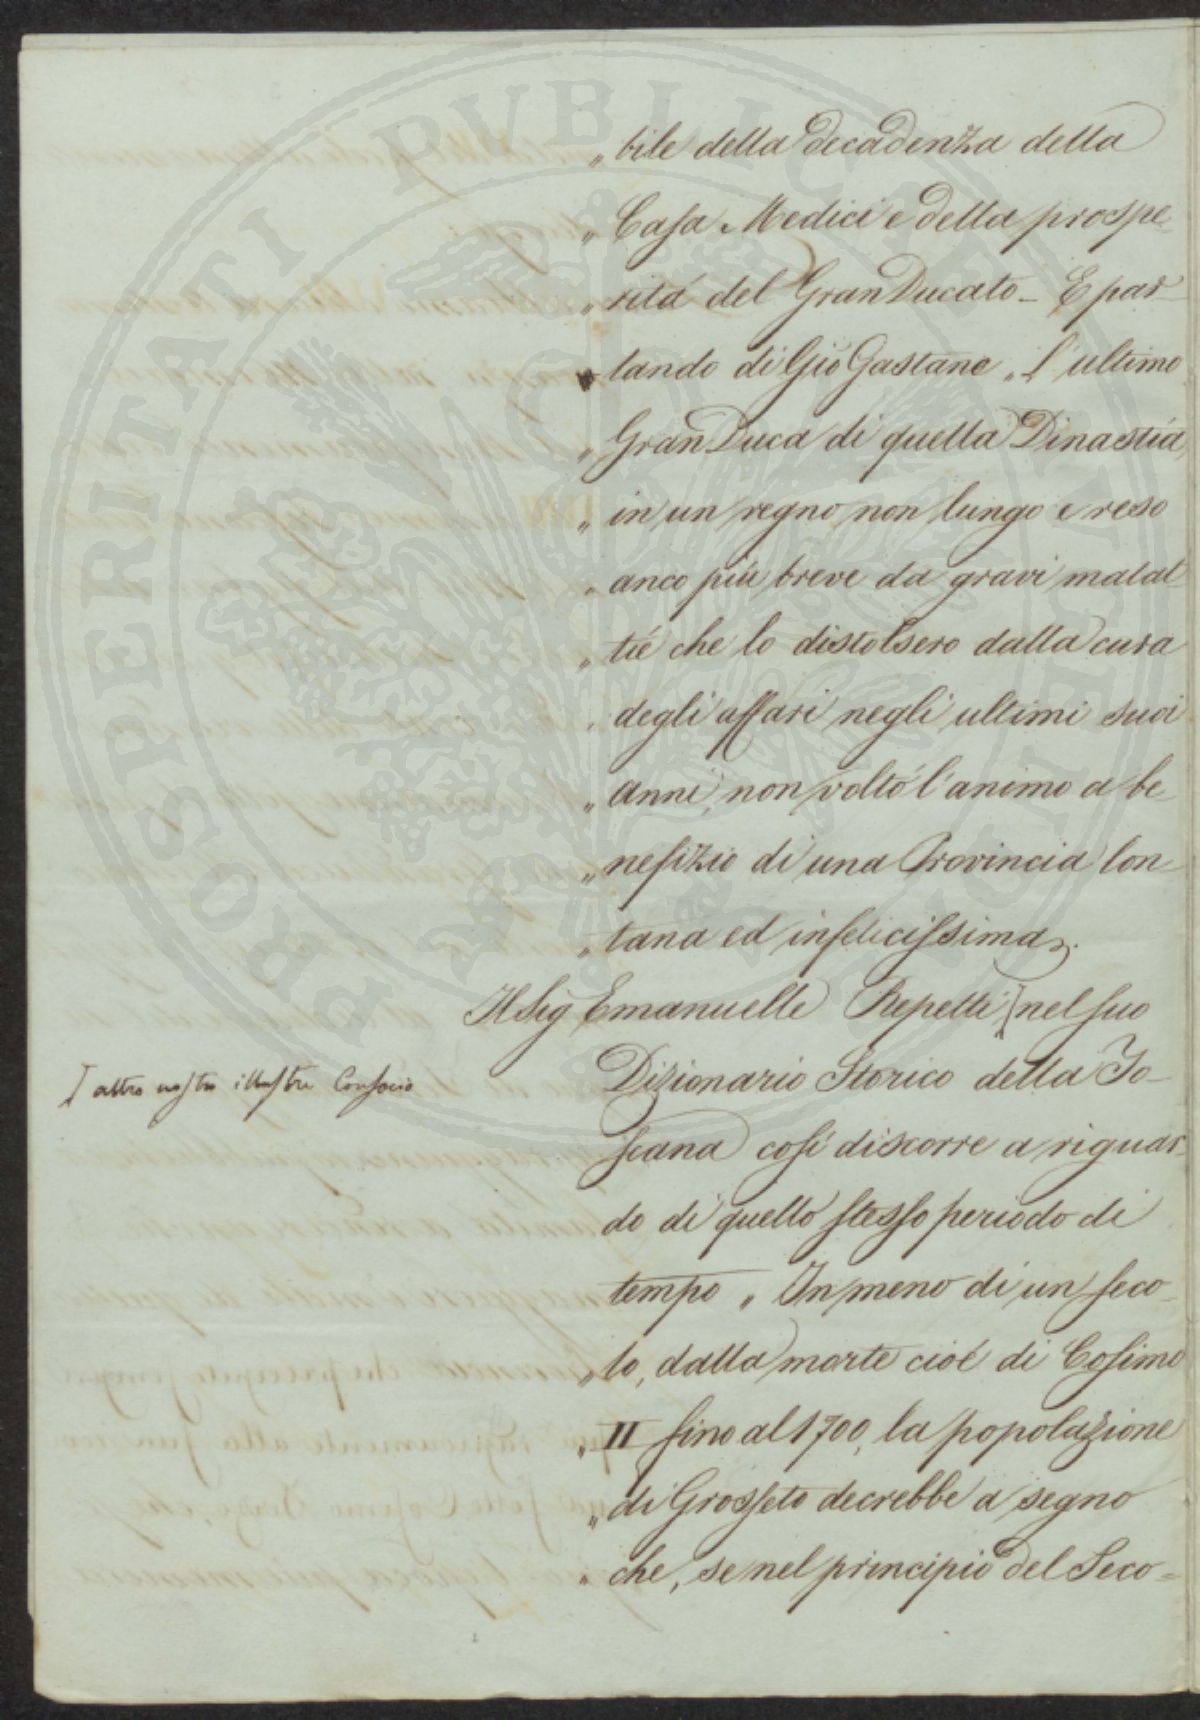 „ bile della decadenza della
„ Casa Medici e della prospe-
„ ritá del GranDucato - E par-
„ lando di Gio Gastone „ l'ultimo
„ GranDuca di quella Dinastia,
„ in un regno non lungo e reso
„ anco piú breve da gravi malat-
„ tie che lo distolsero dalla cura
„ degli affari negli ultimi suoi
„ anni, non voltó l'animo a be-
„ nefizio di una Provincia lon-
„ tana ed infelicissima„.
Il Sig Emanuelle Repetti [ nel suo
[ altro nostro illustre Consocio
Dizionario Storico della To-
scana cosí discorre a riguar-
do di quello stesso periodo di
tempo „ In meno di un seco-
„ lo, dalla morte cioé di Cosimo
„ II fino al 1700, la popolazione
„ di Grosseto decrebbe a segno
„ che, se nel principio del Seco=
PROSPERITATI PUBLICAE